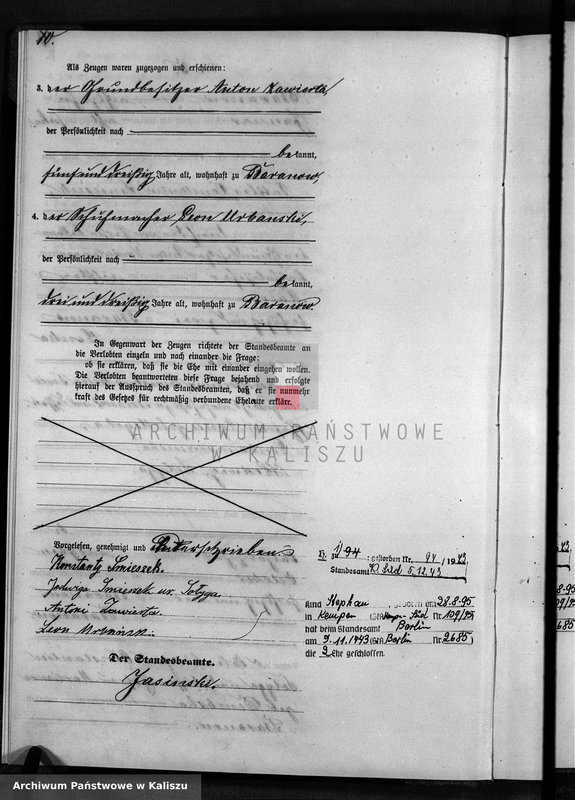 10.
Als Zeugen waren zugezogen und erschienen:
3. der Grundbesitzer Anton Zawierta,
der Persönlichkeit nach
bekannt,
fünfunddreißig Jahre alt, wohnhaft zu Baranow,
4. der Schuhmacher Leon Urbanski,
der Persönlichkeit nach
bekannt,
dreiunddreißig Jahre alt, wohnhaft zu Baranow.
In Gegenwart der Zeugen richtete der Standesbeamte an
die Verlobten einzeln und nach einander die Frage:
ob sie erklären, daß sie die Ehe mit einander eingehen wollen.
Die Verlobten beantworteten diese Frage bejahend und erfolgte
hierauf der Ausspruch des Standesbeamten, daß er sie nunmehr
kraft des Gesetzes für rechtmäßig verbundene Eheleute erkläre.
ARCHIWUM PAŃSTWOWE
W KALISZU
Vorgelesen, genehmigt und unterschrieben
Konstanty Smieszek.
Jadwiga Smieszek ur.
Antoni Zawierta
Leon Urbański.
Der Standesbeamte.
Jasinski.
gestorben Nr. 94/1943
Standesamt 5.12.43
Kind Stephan geboren am 28.8.95
in Kempen Nr. 109/95
hat beim Standesamt Berlin
am 9.11.1943 (StA Berlin Nr. 2685)
die 2 Ehe geschlossen.
Archiwum Państwowe w Kaliszu